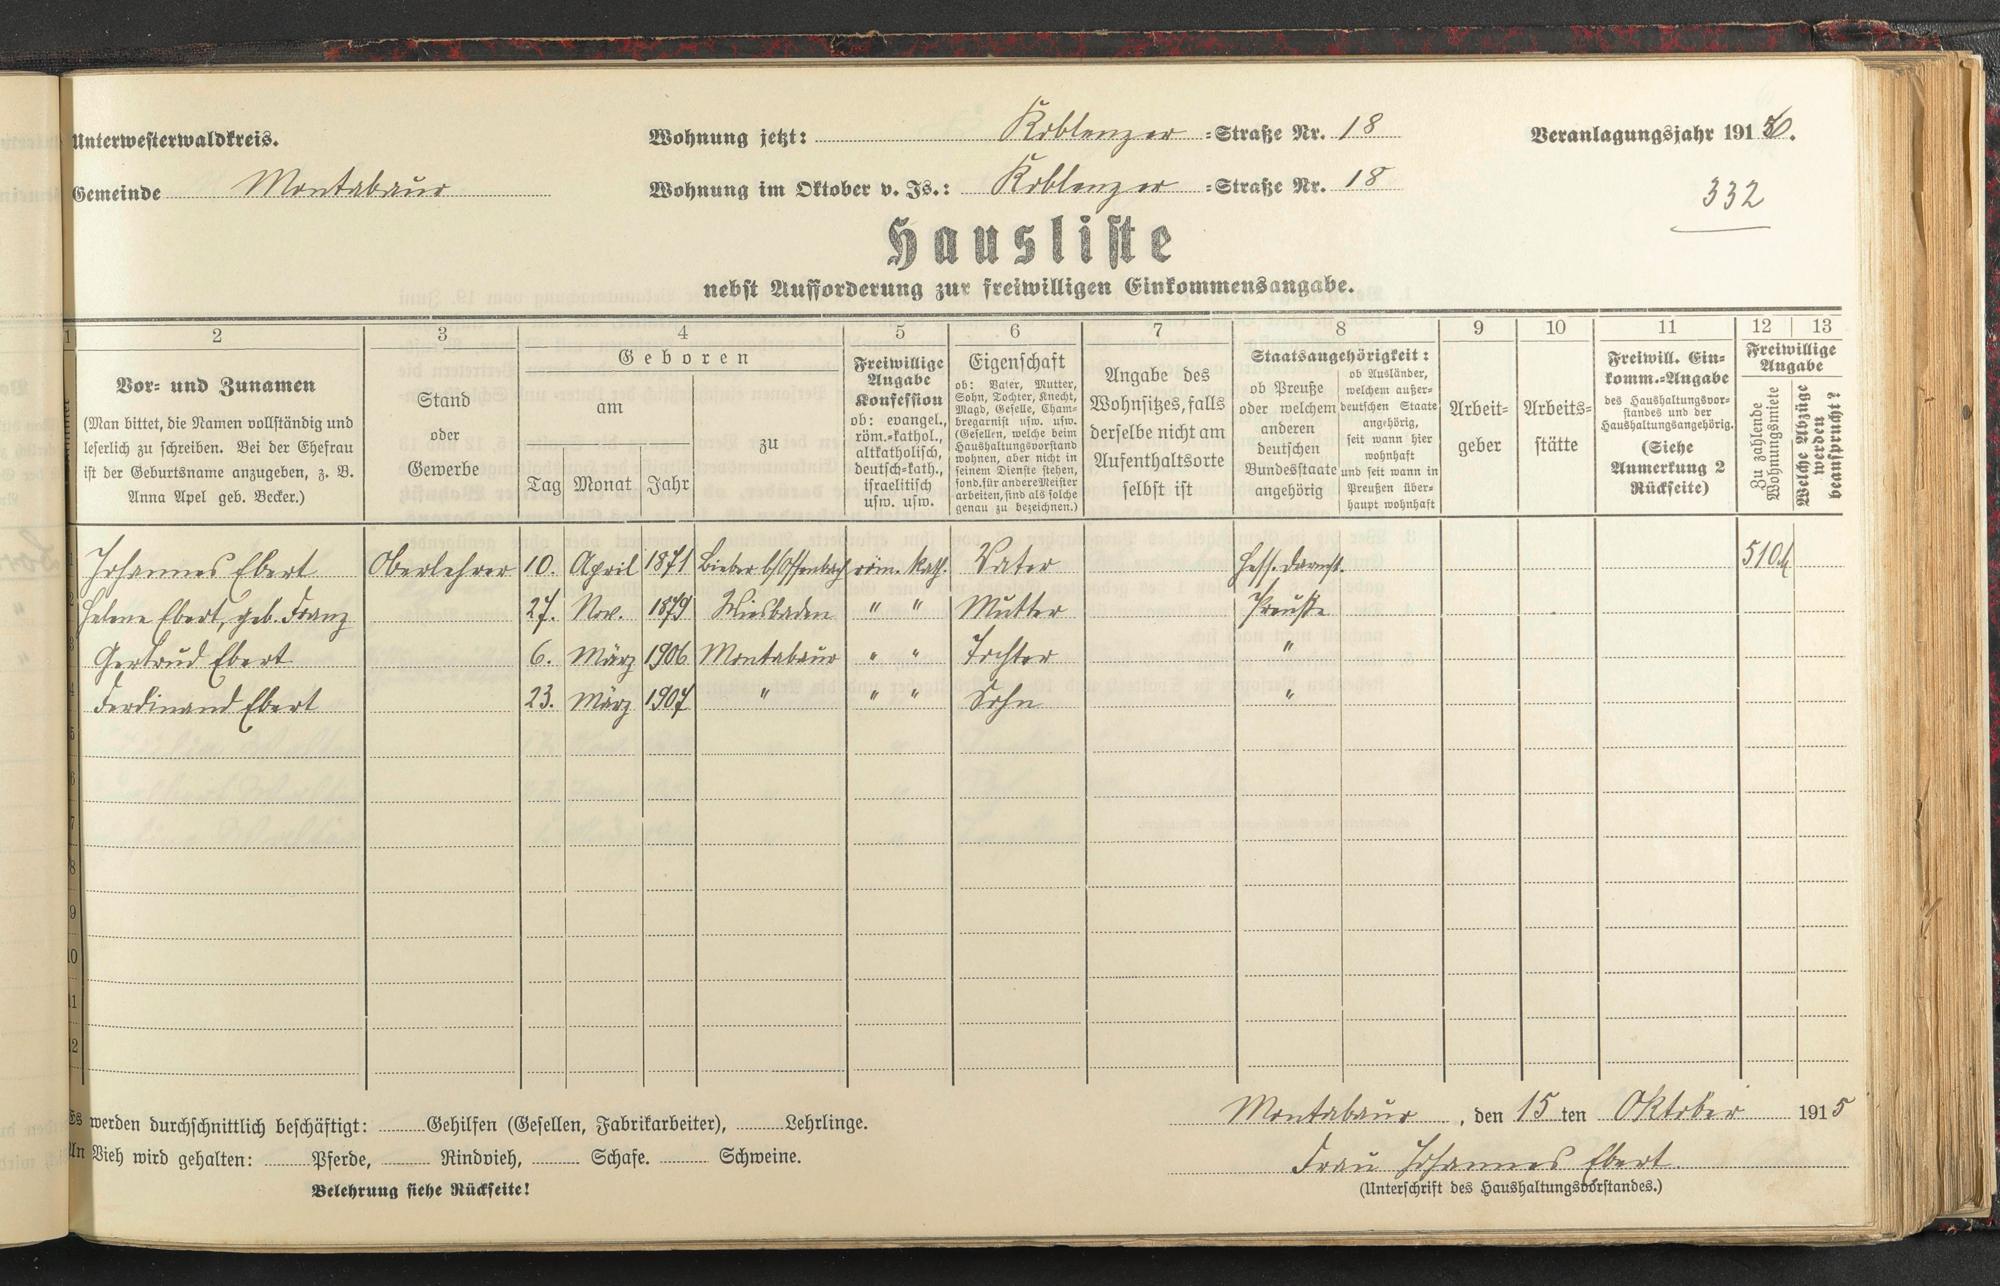 Unterwesterwaldkreis.
Wohnung jetzt: Koblenzer =Straße Nr. 18
Veranlagungsjahr 1916.
Gemeinde Montabaur
Wohnung im Oktober v. Js.: Koblenzer =Straße Nr. 18
332
Hausliste
nebst Aufforderung zur freiwilligen Einkommensangabe.
1 2 3 4 5 6 7 8 9 10 11 12 13
Vor- und Zunamen
(Man bittet, die Namen vollständig und
leserlich zu schreiben. Bei der Ehefrau
ist der Geburtsname anzugeben, z. B.
Anna Apel geb. Becker.)
Stand
oder
Gewerbe
Geboren
am
Tag Monat Jahr
zu
Freiwillige
Angabe
Konfession
ob: evangel.,
röm.=kathol.,
altkatholisch,
deutsch=kath.,
israelitisch
usw. usw.
Eigenschaft
ob: Vater, Mutter,
Sohn, Tochter, Knecht,
Magd, Geselle, Cham-
bregarnist usw. usw.
(Gesellen, welche beim
Haushaltungsvorstand
wohnen, aber nicht in
seinem Dienste stehen,
sond. für andere Meister
arbeiten, sind als solche
genau zu bezeichnen.)
Angabe des
Wohnsitzes, falls
derselbe nicht am
Aufenthaltsorte
selbst ist
Staatsangehörigkeit:
ob Preuße
oder welchem
anderen
deutschen
Bundesstaate
angehörig
ob Ausländer,
welchem außer=
deutschen Staate
angehörig,
seit wann hier
wohnhaft
und seit wann in
Preußen über=
haupt wohnhaft
Arbeit=
geber
Arbeits=
stätte
Freiwill. Ein=
komm.=Angabe
des Haushaltungsvor=
standes und der
Haushaltungsangehörig.
(Siehe
Anmerkung 2
Rückseite)
Freiwillige
Angabe
Zu zahlende
Wohnungsmiete
Welche Abzüge
werden
beansprucht?
1 Johannes Ebert Oberlehrer 10. April 1871 Bieber b/Offenbach röm. kath. Vater Hess. Darmst. 510 M
2 Helene Ebert, geb. Franz 27. Nov. 1879 Wiesbaden " " Mutter Preuße
3 Gertrud Ebert 6. März 1906 Montabaur " " Tochter "
4 Ferdinand Ebert 23. März 1907 " " " Sohn "
5
6
7
8
9
10
11
12
Es werden durchschnittlich beschäftigt: Gehilfen (Gesellen, Fabrikarbeiter), Lehrlinge.
Montabaur, den 15 ten Oktober 1915
An Vieh wird gehalten: Pferde, Rindvieh, Schafe. Schweine.
Frau Johannes Ebert
Belehrung siehe Rückseite!
(Unterschrift des Haushaltungsvorstandes.)